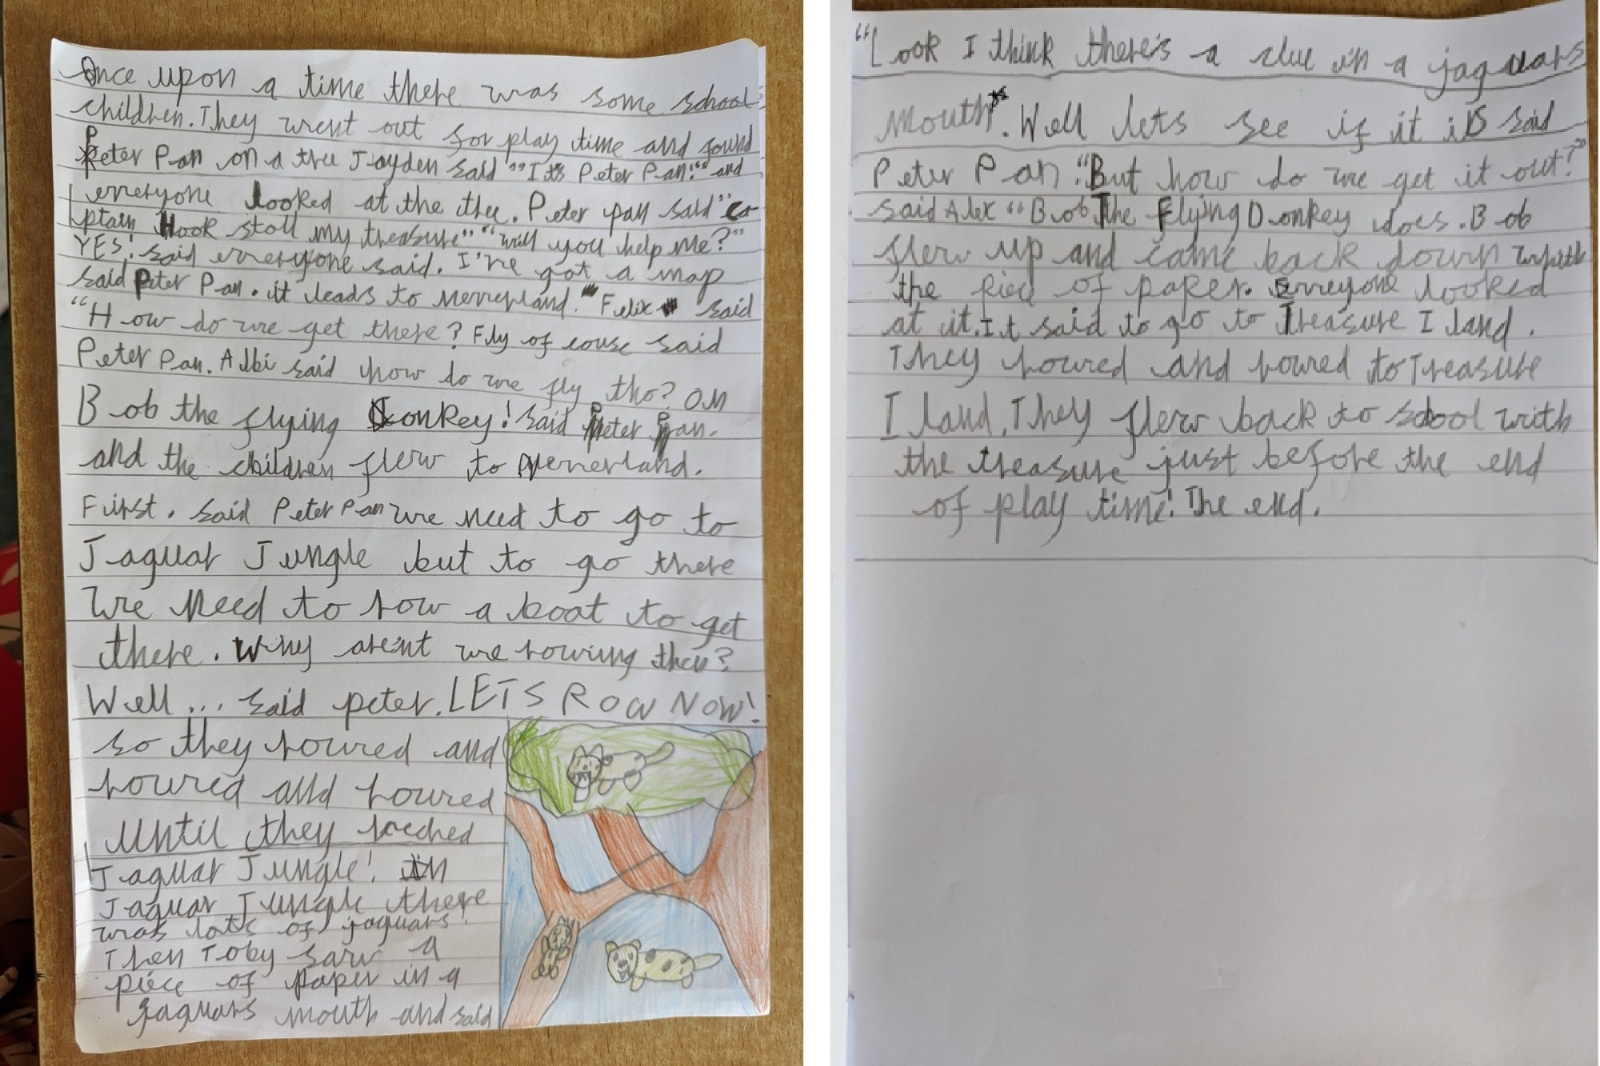 Once upon a time there was some school
children. They went out for play time and found
Peter Pan on a tree Jayden said "It's Peter Pan!" and
everyone looked at the tree. Peter pan said "Ca
ptain Hook stoll my treasure" "will you help me?"
YES! said everyone said. I've got a map
said Peter Pan. it leads to neverland." Felix said
"How do we get there? Fly of couse said
Peter Pan. Albi said how do we fly tho? On
Bob the flying Donkey! said Peter Pan.
and the children flew to Neverland.
First. said Peter Pan we need to go to
Jaguar Jungle but to go there
We need to row a boat to get
there. Why are'nt we rowing then?
Well... said peter. LETS ROW NOW!
so they rowed and
rowed and rowed
until they reched
Jaguar Jungle! in
Jaguar Jungle there
was lots of jaguars!
Then Toby saw a
piece of paper in a
jaguars mouth and said
"Look I think there's a clue in a jaguars
Mouth". Well lets see if it is said
Peter Pan. "But how do we get it out?"
said Alex "Bob The Flying Donkey does. Bob
flew up and came back down with
the piec of paper. Erreyone looked
at it. It said to go to Treasure Iland.
They rowed and rowed to Treasure
Iland. They flew back to school with
the treasure just before the end
of play time! The end.